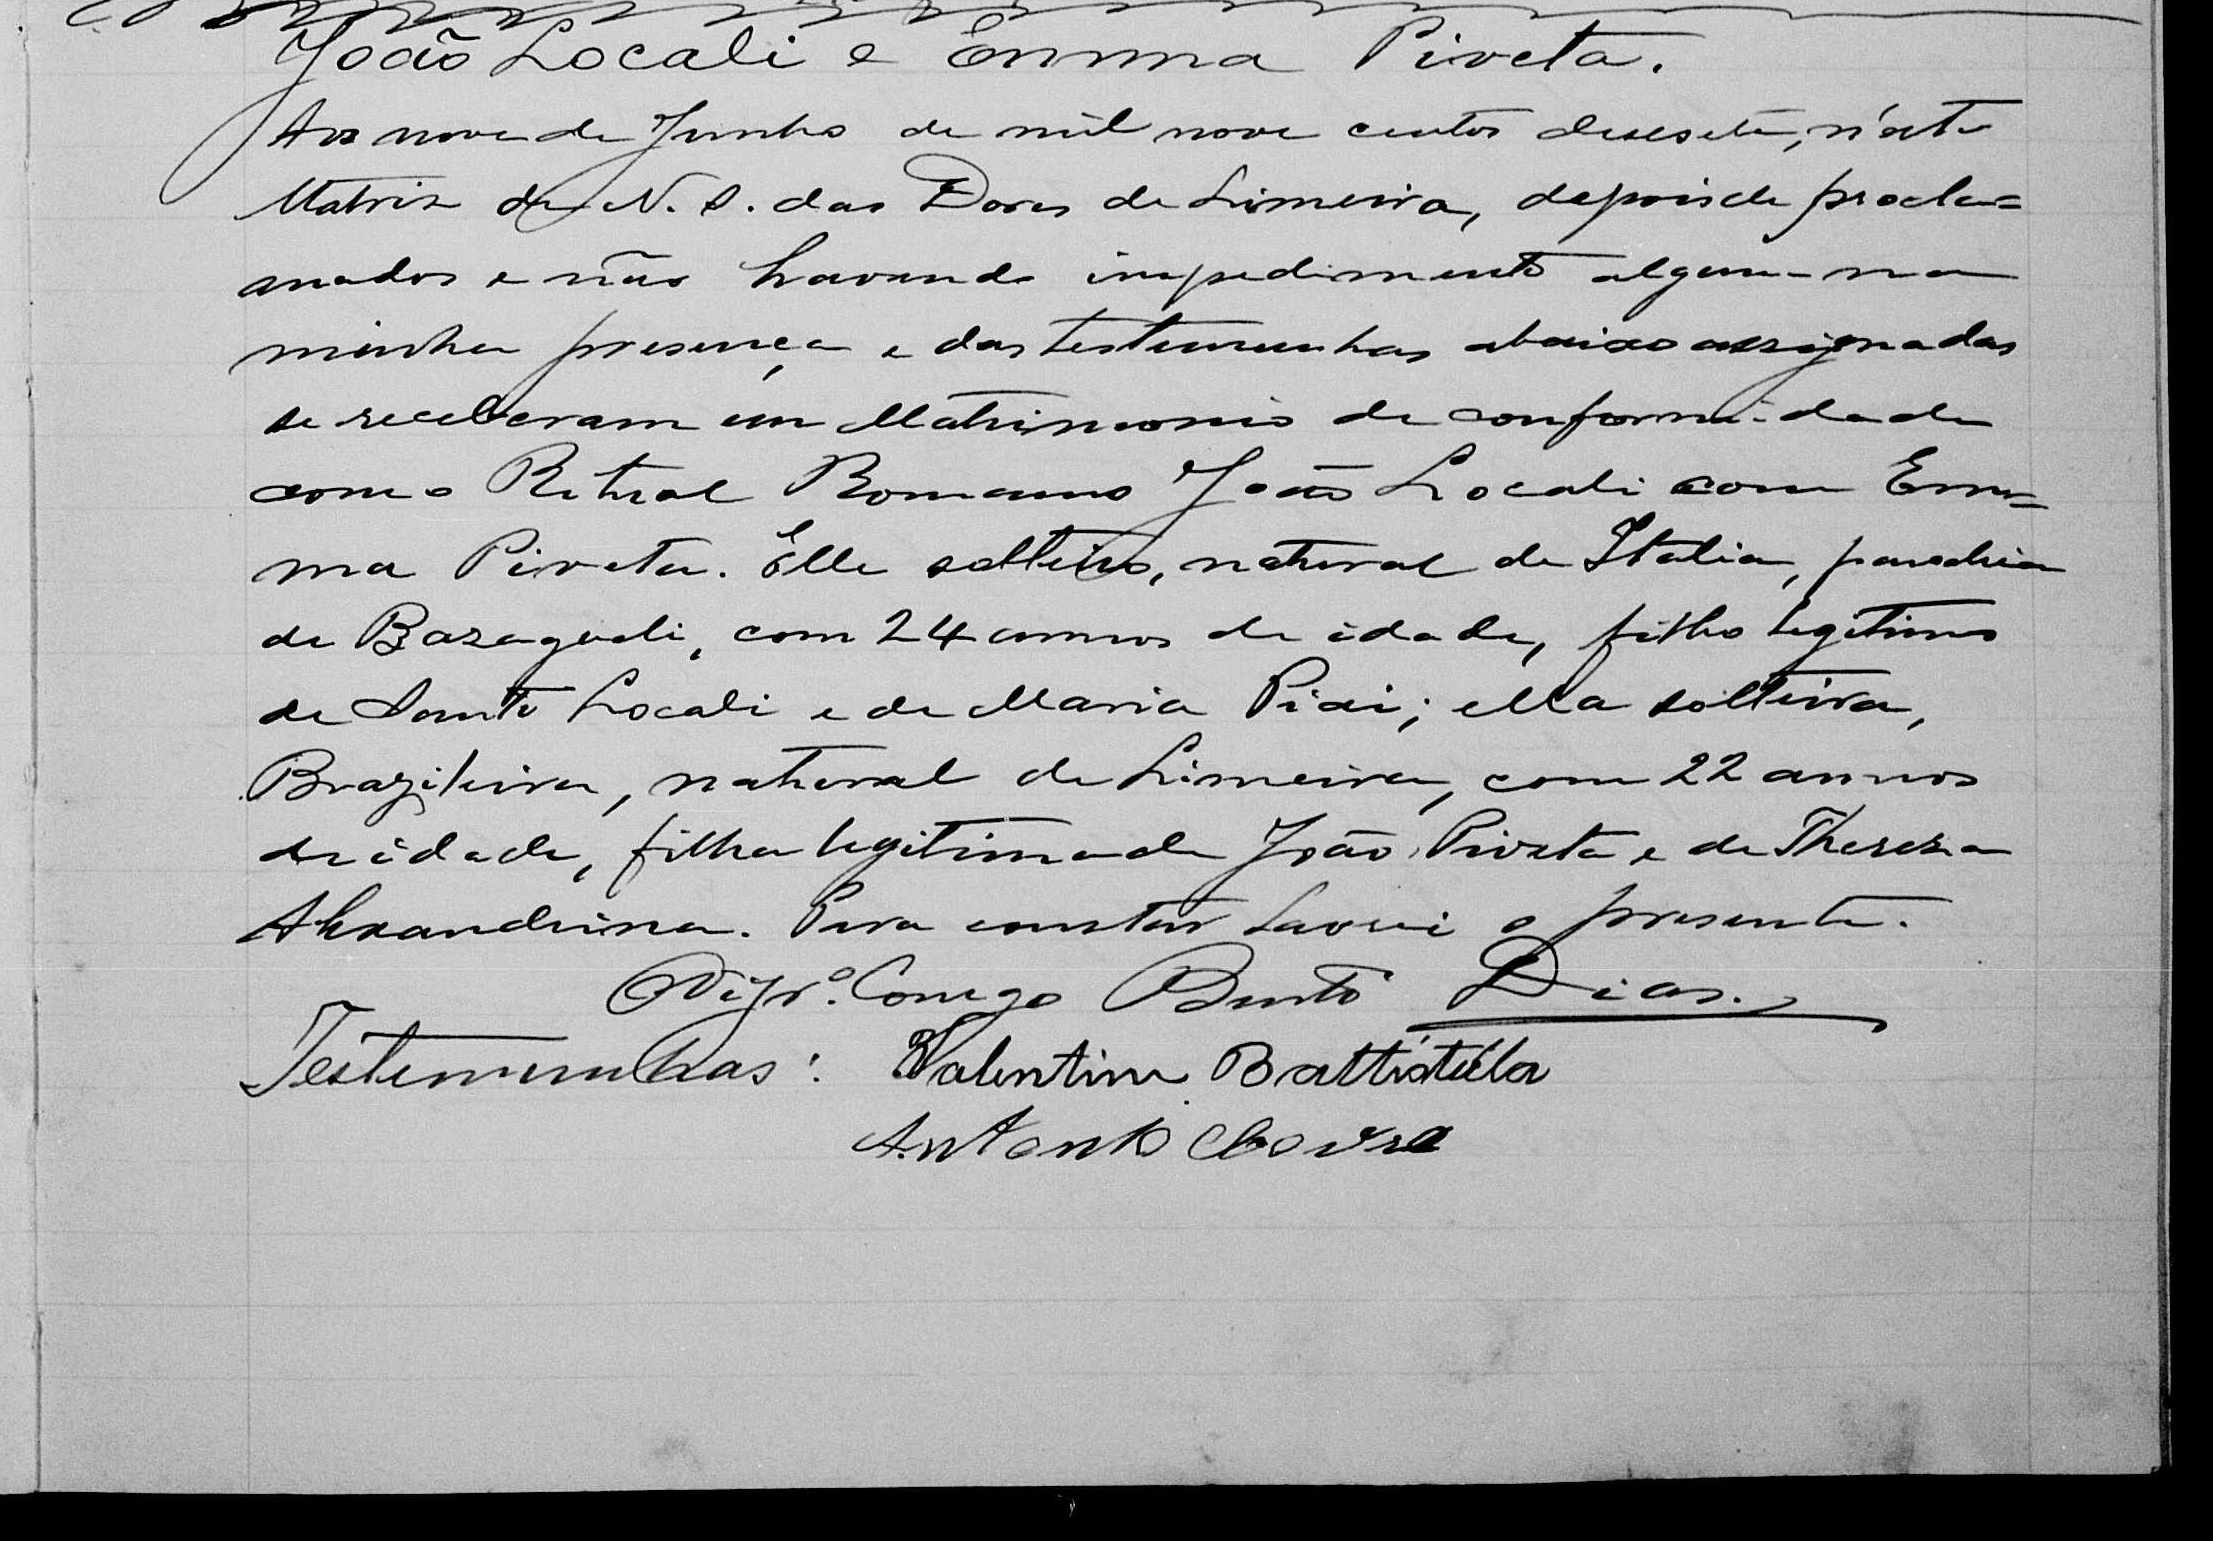 João Locali e Emma Piveta.
Aos nove de Junho de mil nove centos desesete, n'esta
Matriz de N. S. das Dores de Limeira, depois de procla=
mados e não havendo impedimento algum na
minha presença e das testemunhas abaixo assignadas
se receberam em Matrimonio de conformidade
com o Ritual Romano João Locali com Em=
ma Piveta. Elle solteiro, natural de Italia, parochia
de com 24 annos de idade, filho legitimo
de Santo Locali e de Maria Piai; ella solteira,
Brazileira, natural de Limeira, com 22 annos
de idade, filha legitima de João Piveta e de Thereza
Alexandrina. Para constar lavrei o presente.
O Vigr.º Conego Bento Dias.
Testemunhas: Valentim Battistella
Antonio